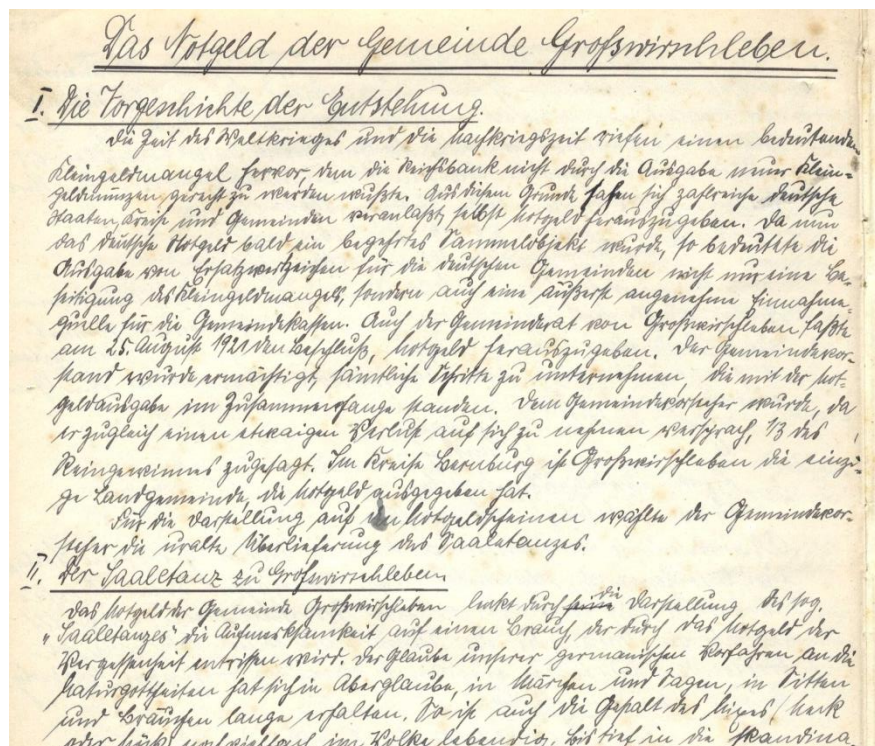 Das Notgeld der Gemeinde Großwirschleben.
I. Die Vorgeschichte der Entstehung.
Die Zeit des Weltkrieges und die Nachkriegszeit riefen einen bedeutenden
Kleingeldmangel hervor, dem die Reichsbank nicht durch die Ausgabe neuer Klein=
geldmünzen gerecht zu werden wußte. Aus diesem Grunde sahen sich zahlreiche deutsche
Staaten, Kreise und Gemeinden veranlaßt, selbst Notgeld herauszugeben. Da nun
das deutsche Notgeld bald ein begehrtes Sammelobjekt wurde, so bedeutete die
Ausgabe von Ersatzwertzeichen für die deutschen Gemeinden nicht nur eine Be=
seitigung des Kleingeldmangels, sondern auch eine äußerst angenehme Einnahme=
quelle für die Gemeindekassen. Auch der Gemeinderat von Großwirschleben faßte
am 25. August 1921 den Beschluß, Notgeld herauszugeben. Der Gemeindevor=
stand wurde ermächtigt, sämtliche Schritte zu unternehmen, die mit der Not=
geldausgabe im Zusammenhange standen. Dem Gemeindevorsteher wurde, da
er zugleich einen etwaigen Verlust auf sich zu nehmen versprach, 1/3 des
Reingewinnes zugesagt. Im Kreise Bernburg ist Großwirschleben die einzi=
ge Landgemeinde, die Notgeld ausgegeben hat.
Für die Darstellung auf den Notgeldscheinen wählte der Gemeindevor=
steher die uralte Überlieferung des Saaletanzes.
II. Der Saaletanz zu Großwirschleben
Das Notgeld der Gemeinde Großwirschleben lenkt durch seine die Darstellung des sog.
"Saaletanzes" die Aufmerksamkeit auf einen Brauch, der durch das Notgeld der
Vergessenheit entrissen wird. Der Glaube unserer germanischen Vorfahren an die
Naturgottheiten hat sich in Aberglaube, in Märchen und Sagen, in Sitten
und Bräuchen lange erhalten. So ist auch die Gestalt des Nixes, Neck
oder Nück noch vielfach im Volke lebendig, bis tief in die skandina=